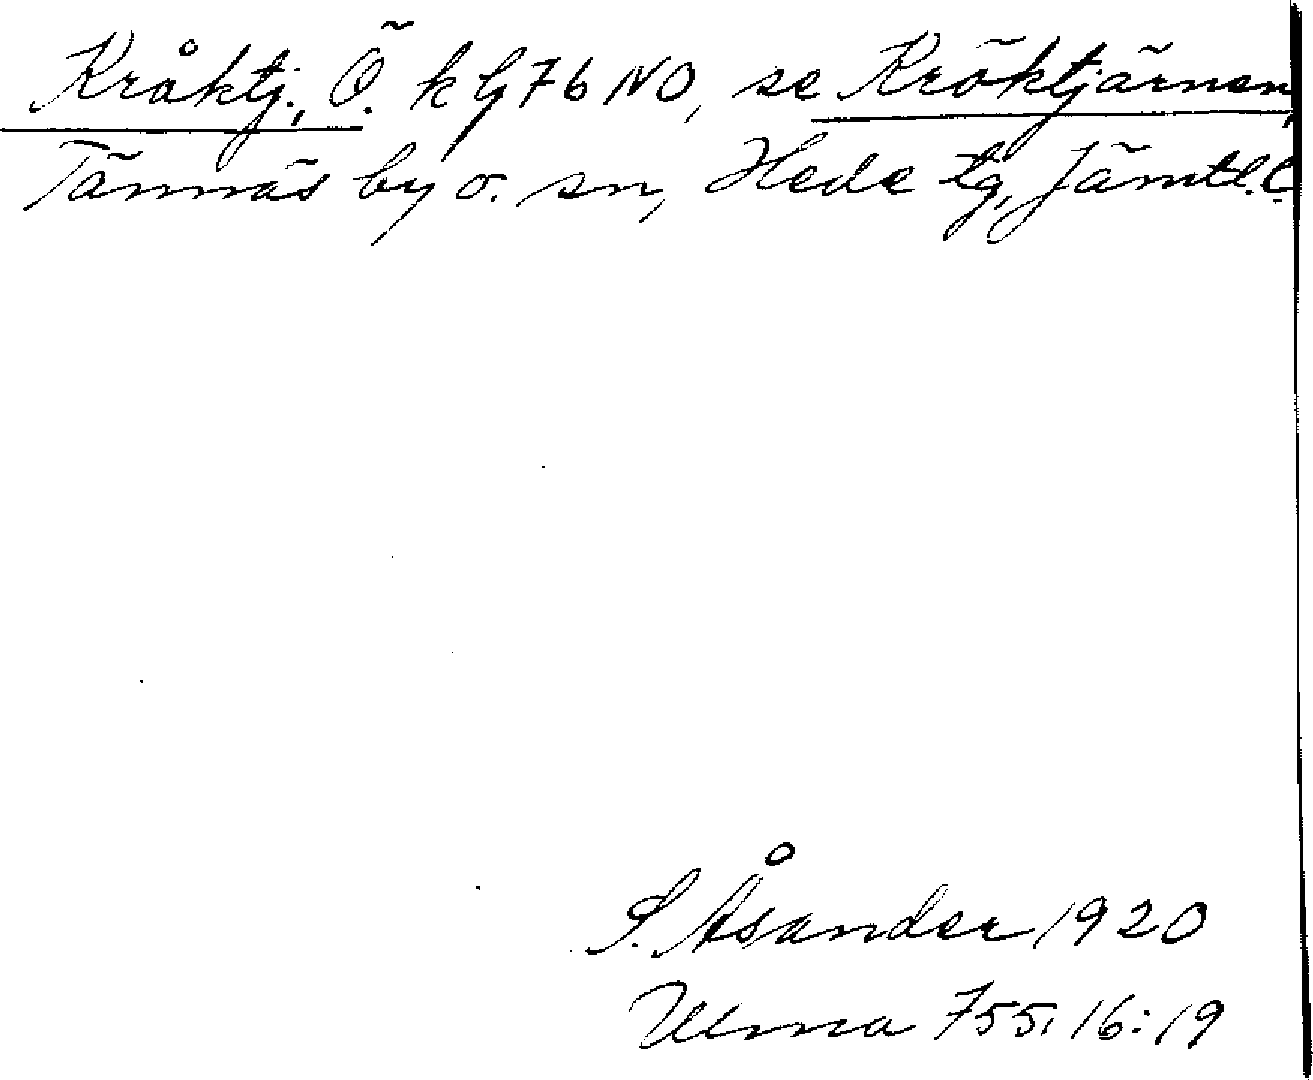 Kråktj., Ö. k G 76 NO, se Kröktjärnen,
Tännäs by o. sn, Hede tg, Jämtl. l.
S. Åsander 1920
Ulma 755, 16:19